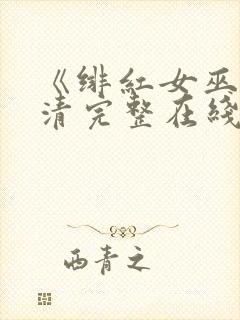 《绯红女巫
清完整在线
西青之